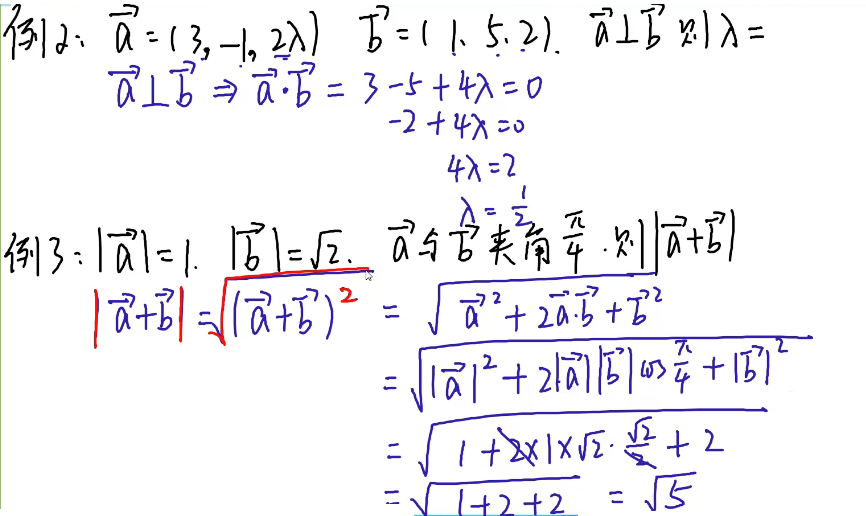 例2: a⃗=(3,-1,2λ) b⃗=(1.5.2). a⃗⊥b⃗ 则λ=
a⃗⊥b⃗ ⇒ a⃗·b⃗ = 3-5+4λ=0
-2+4λ=0
4λ=2
λ=1/2
例3: |a⃗|=1. |b⃗|=√2. a⃗与b⃗夹角π/4.则|a⃗+b⃗|
|a⃗+b⃗|=√(a⃗+b⃗)² = √(a⃗²+2a⃗·b⃗+b⃗²)
=√(|a⃗|²+2|a⃗||b⃗|cosπ/4+|b⃗|²)
=√(1+2×1×√2·√2/2+2)
=√(1+2+2) =√5